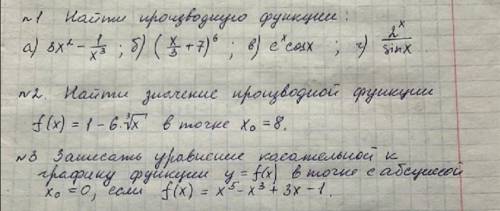 №1 Найти производную функции:
а) 3x² - 1/x³ ; б) (x/3 + 7)⁶ ; в) eˣcosx ; г) 2ˣ/sinx .
№2. Найти значение производной функции
f(x) = 1 - 6·³√x в точке x₀ = 8.
№3 Записать уравнение касательной к
графику функции y = f(x) в точке с абсциссой
x₀ = 0, если f(x) = x⁵ - x³ + 3x - 1.